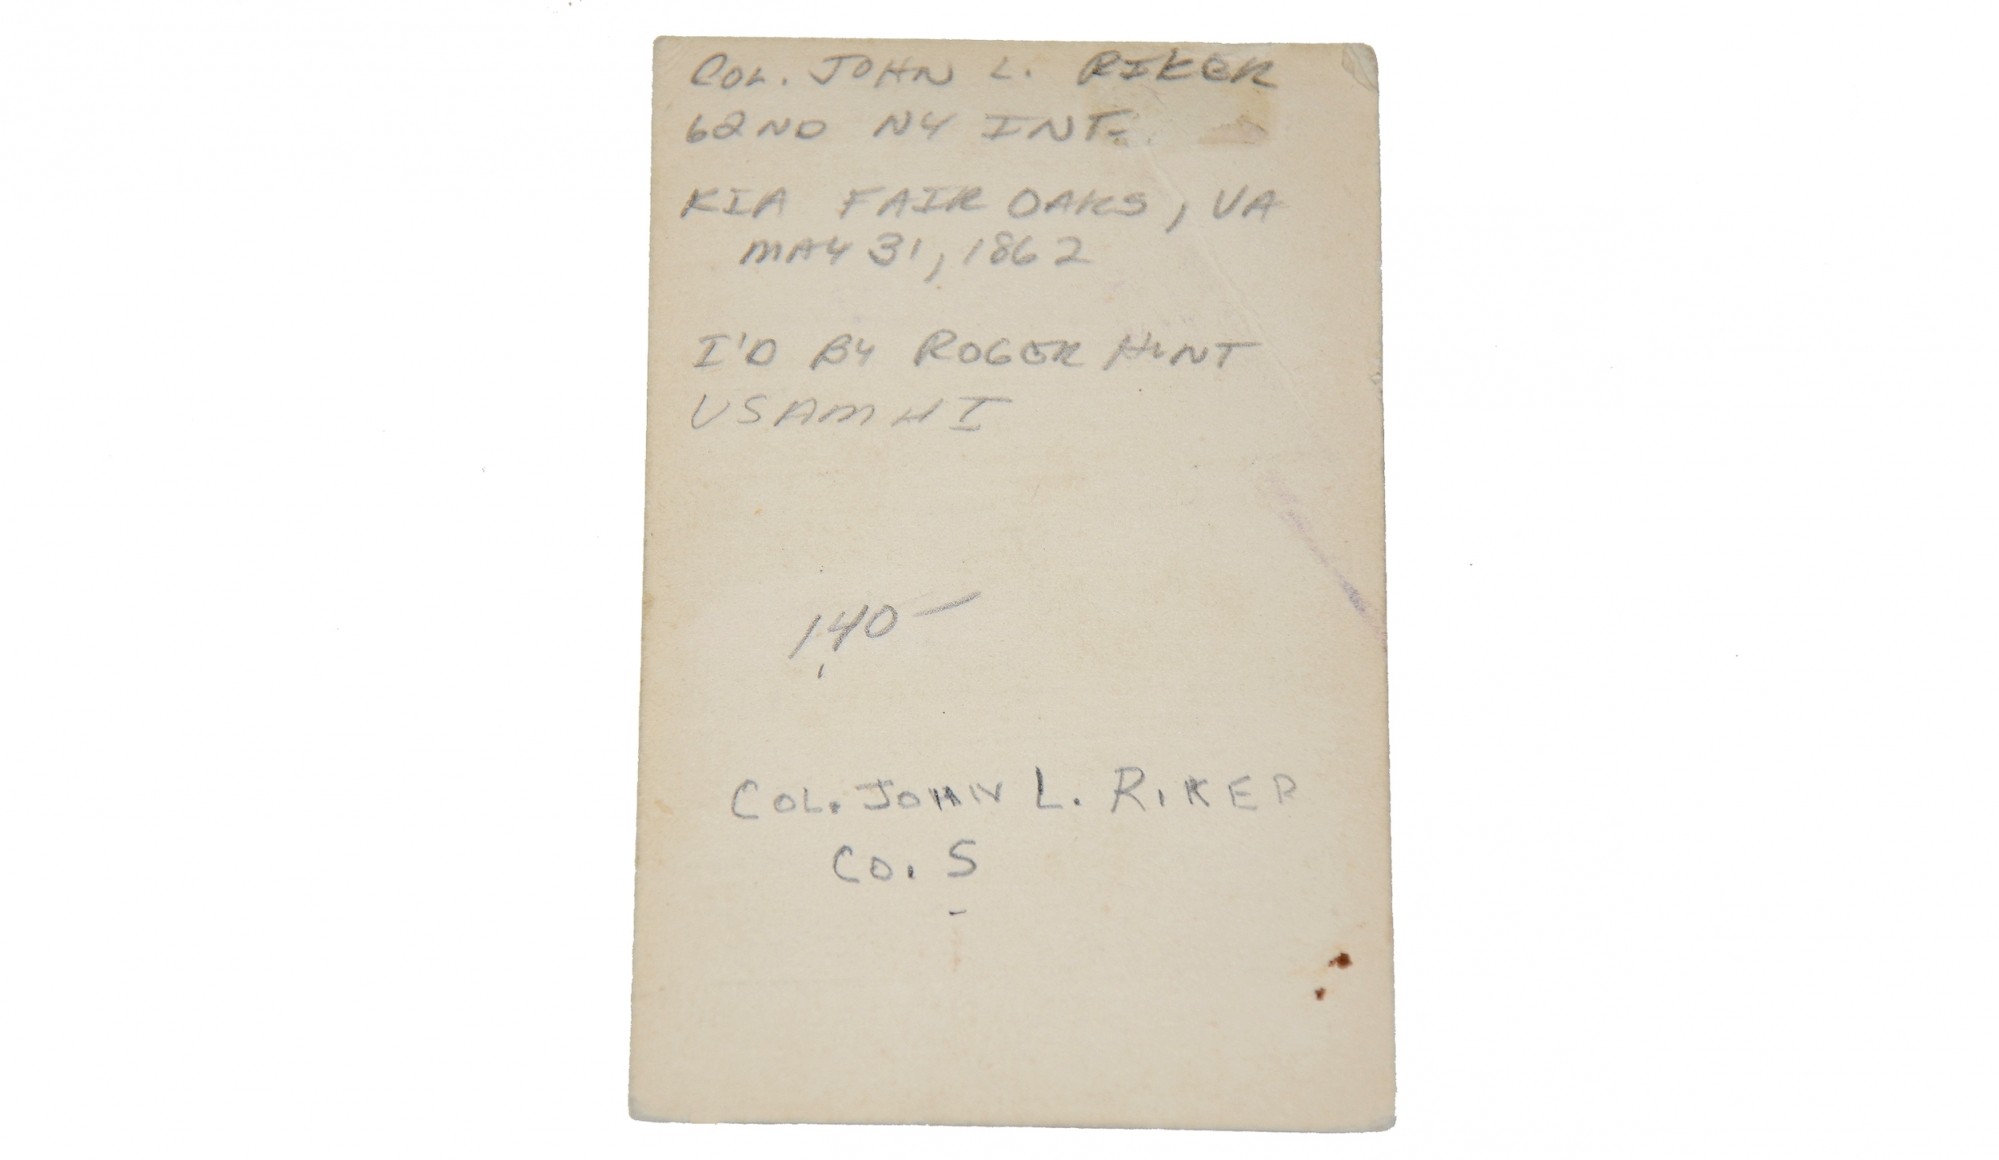 COL. JOHN L. RIKER
62ND NY INF.
KIA FAIR OAKS, VA
MAY 31, 1862
I'D BY ROGER HUNT
USAMHI
140-
COL. JOHN L. RIKER
CO. S